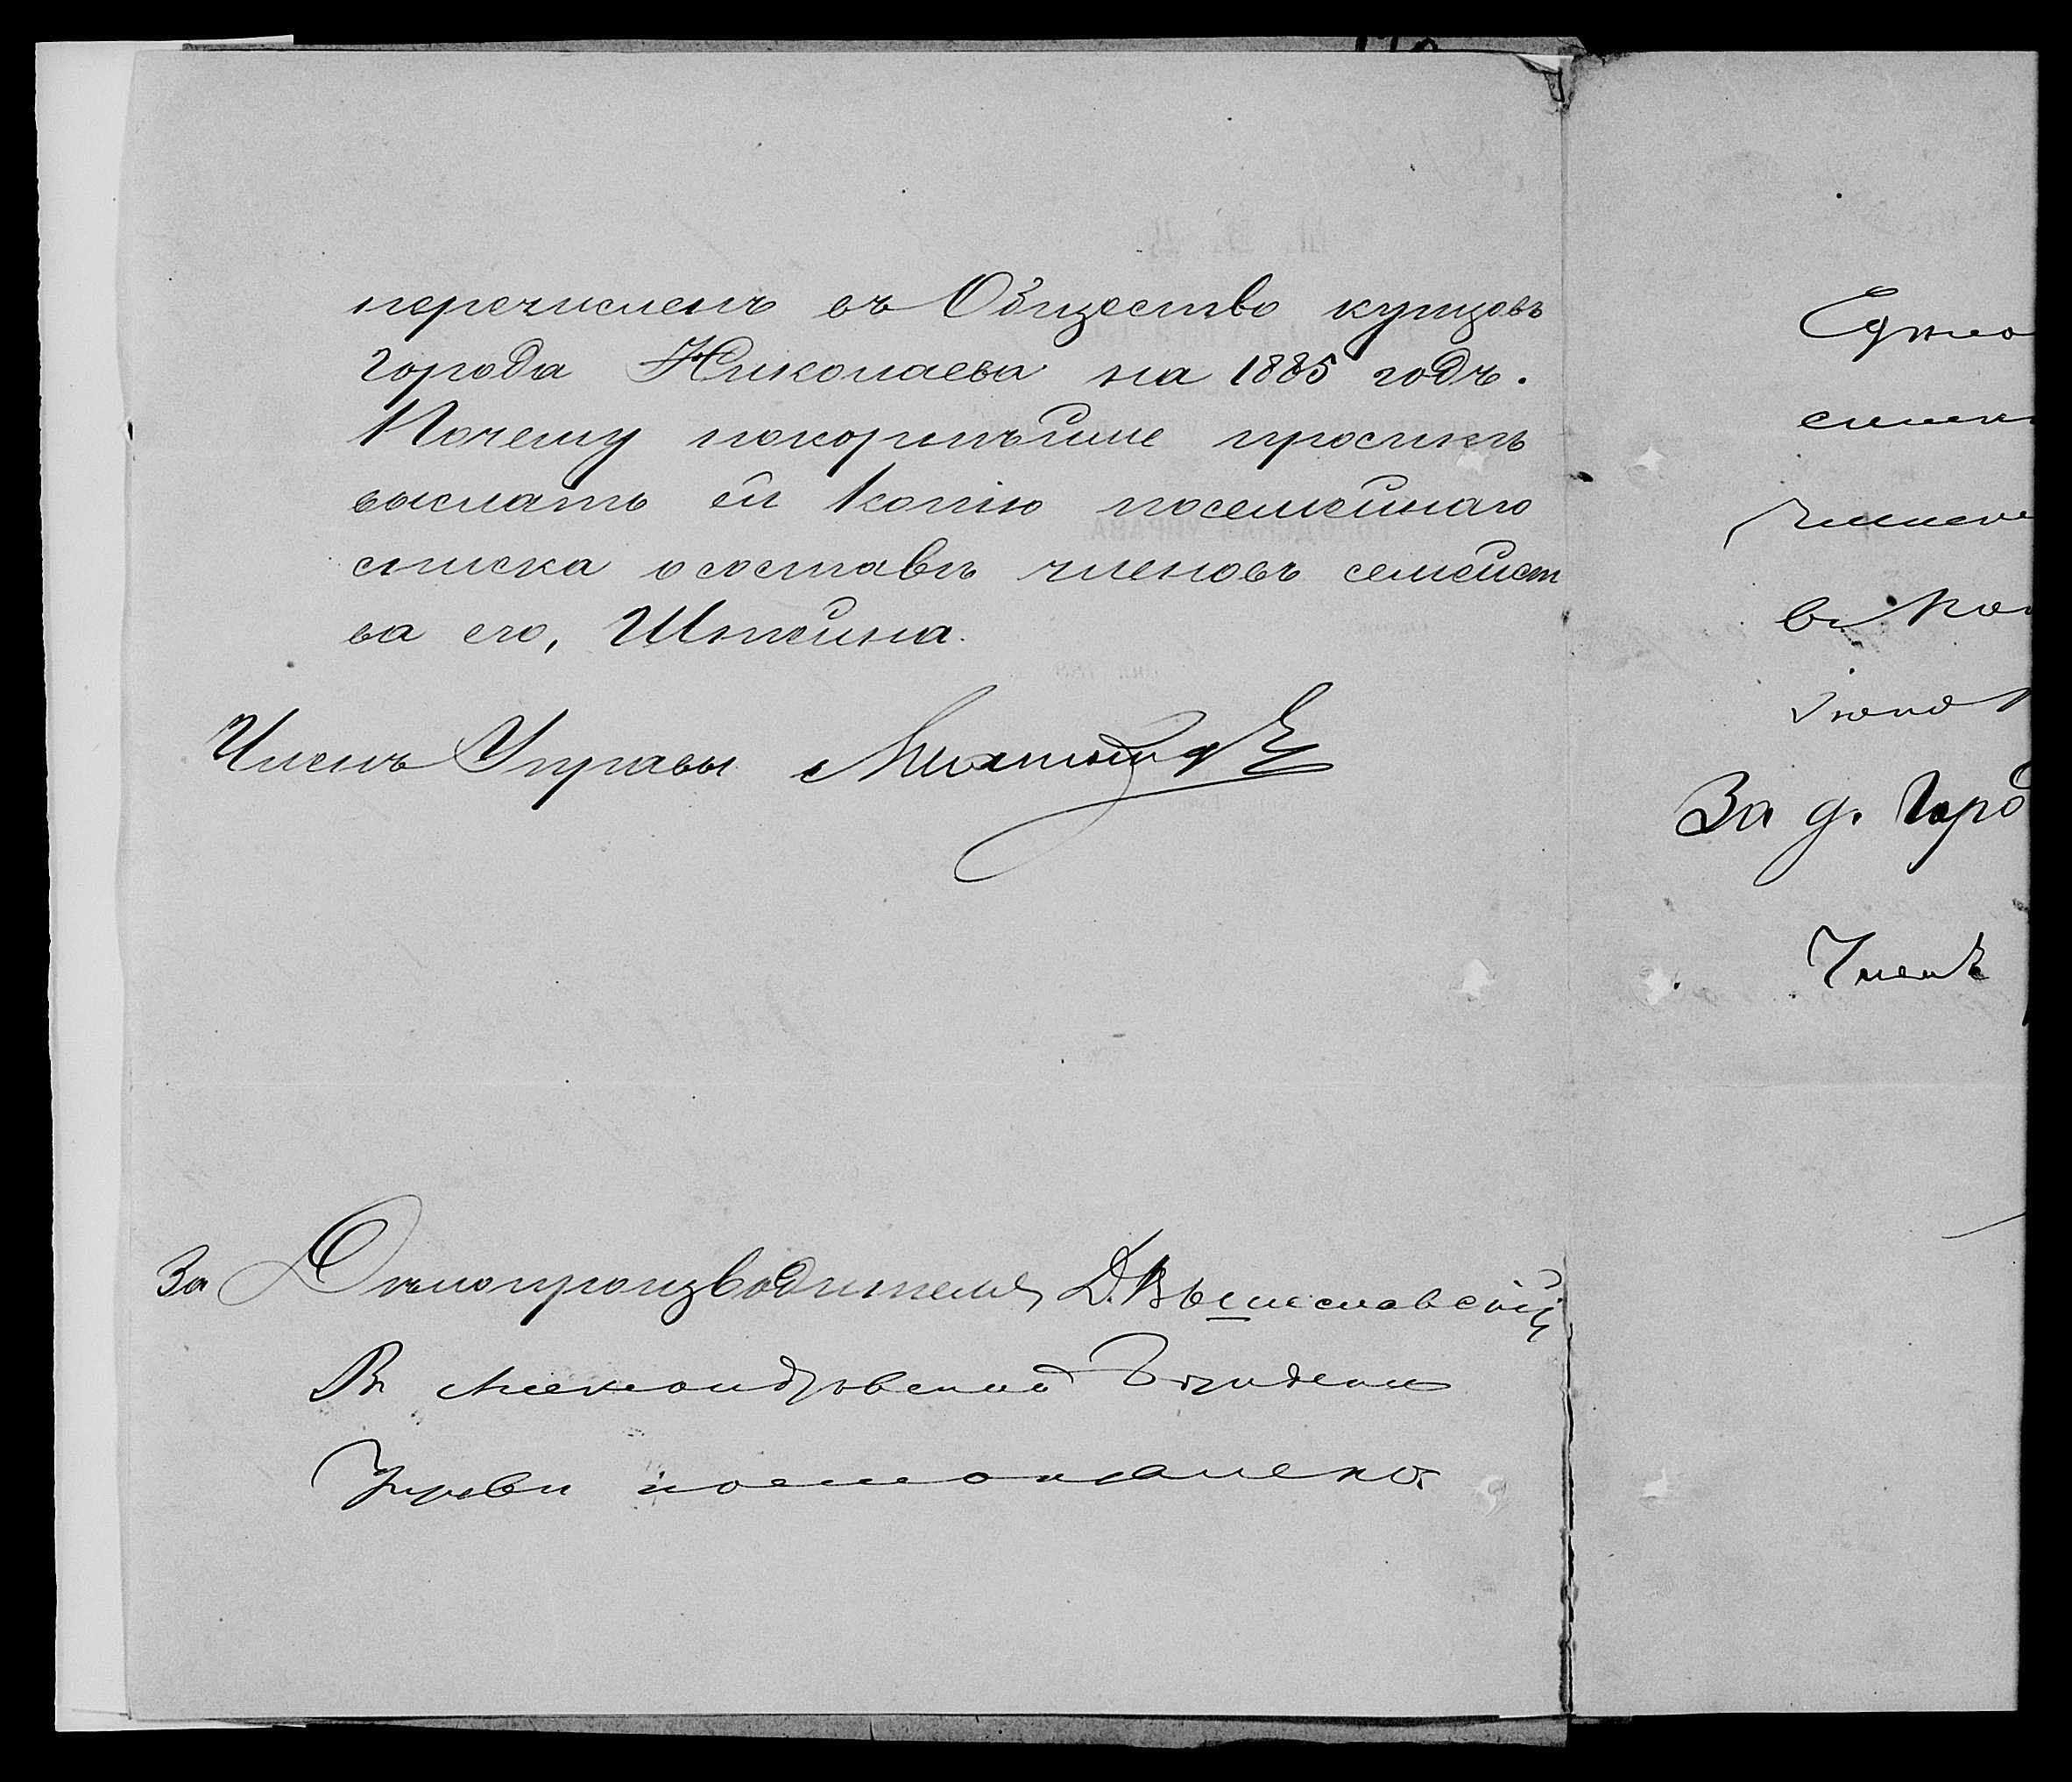 перечисленъ въ Общество купцовъ
города Николаева на 1885 годъ.
Почему покорнѣйше проситъ
выслать ей копію посемейнаго
списка о составѣ членовъ семейст
ва его, Штейна.
Членъ Управы
За Дѣлопроизводителя Д. Вышеславскій
Въ Александровской Городской
Управѣ постановлено:
За д. Горо
Членъ